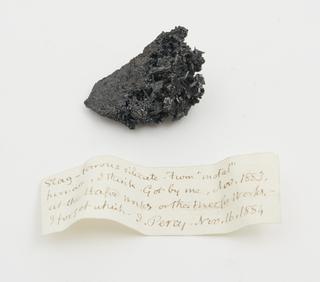 Slag - ferrous silicate - from "metal"
furnace, I think. Got by me, Nov. 1883,
at the Hafod works or the Works, -
I forget which - J. Percy - Nov. 16, 1884